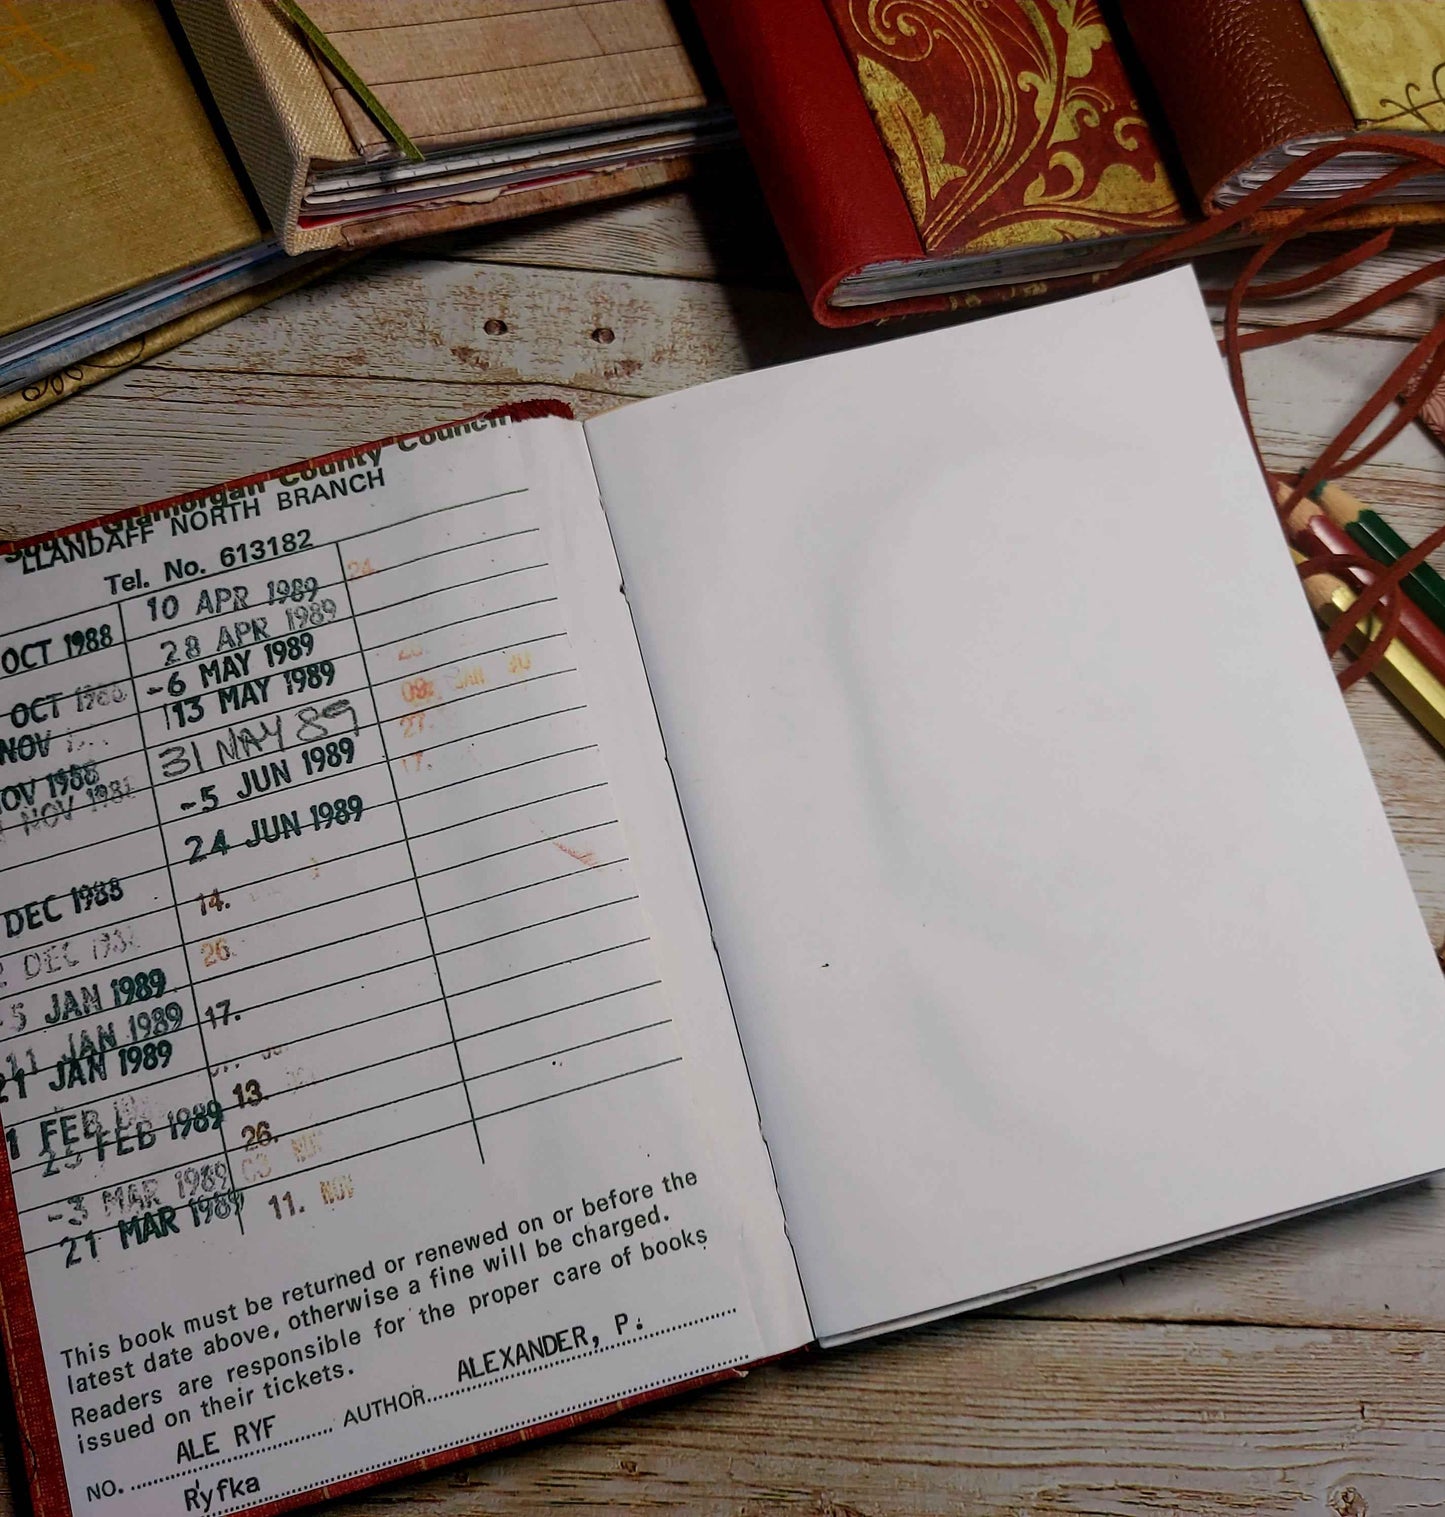 South Glamorgan County Council
LLANDAFF NORTH BRANCH
Tel. No. 613182
OCT 1988
OCT 1988
NOV
NOV 1988
NOV 198
DEC 1988
DEC 193
-5 JAN 1989
11 JAN 1989
21 JAN 1989
1 FEB
23 FEB 1989
-3 MAR 1989
21 MAR 1989
10 APR 1989
28 APR 1989
-6 MAY 1989
13 MAY 1989
31 MAY 89
-5 JUN 1989
24 JUN 1989
14.
26.
17.
13.
26.
03 NOV
11. NOV
24.
09. JAN
27.
17.
This book must be returned or renewed on or before the
latest date above, otherwise a fine will be charged.
Readers are responsible for the proper care of books
issued on their tickets.
NO. ALE RYF AUTHOR ALEXANDER, P.
Ryfka